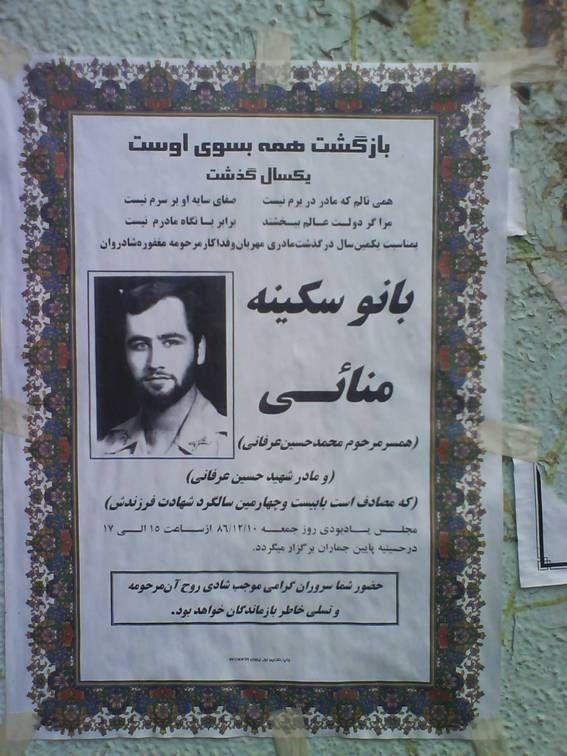 بازگشت همه بسوی اوست
یکسال گذشت
همی نالم که مادر در برم نیست صفای سایه او بر سرم نیست
مرا گر دولت عالم ببخشند برابر با نگاه مادرم نیست
بمناسبت یکمین سال درگذشت مادری مهربان وفداکار مرحومه مغفوره شادروان
بانو سکینه
منائی
(همسر مرحوم محمدحسین عرفانی)
(و مادر شهید حسین عرفانی)
(که مصادف است بابیست وچهارمین سالگرد شهادت فرزندش)
مجلس یادبودی روز جمعه ۸۶/۱۲/۱۰ از ساعت ۱۵ الی ۱۷
درحسینیه پایین جماران برگزار میگردد.
حضور شما سروران گرامی موجب شادی روح آن مرحومه
و تسلی خاطر بازماندگان خواهد بود.